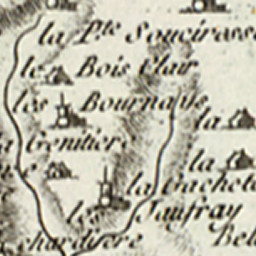 la P.te Soucirass
le Bois Clair
les Bournays
la
Genitière
la
la Gachet
les Jaufray
chardière
Bel